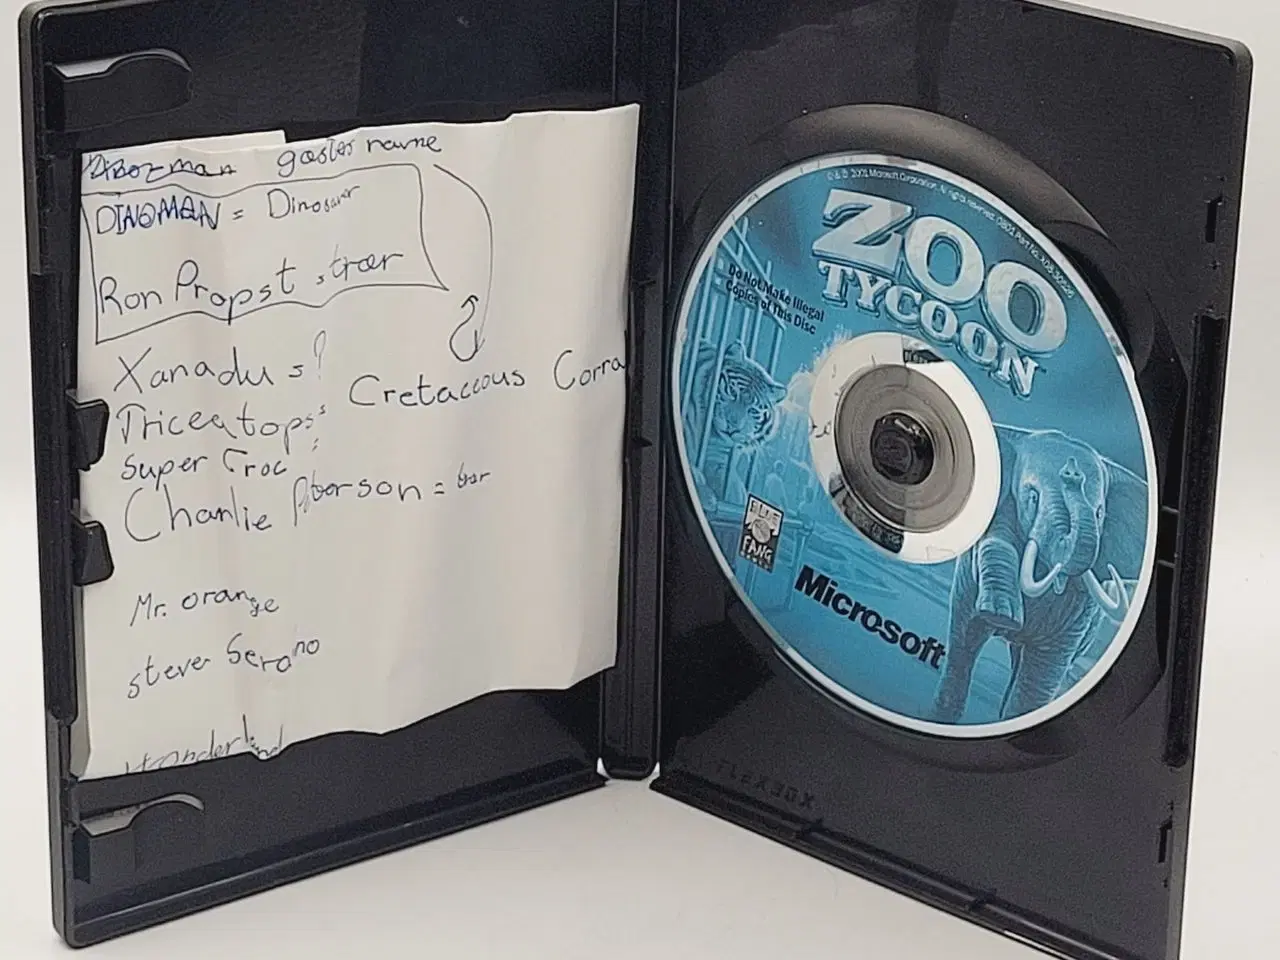 name
DINOMAN = Dinosaur
Ron Propst = star
Xanadu = ?
Cretaceous Corra
Triceatops =
super Croc =
Charlie =
Mr. orange
steve
© & ℗ 2001 Microsoft Corporation. All rights reserved. 0801 Part No. X08-30526
ZOO
TYCOON
Do Not Make Illegal
Copies of This Disc
BLUE
FANG
Microsoft
FLEXBOX